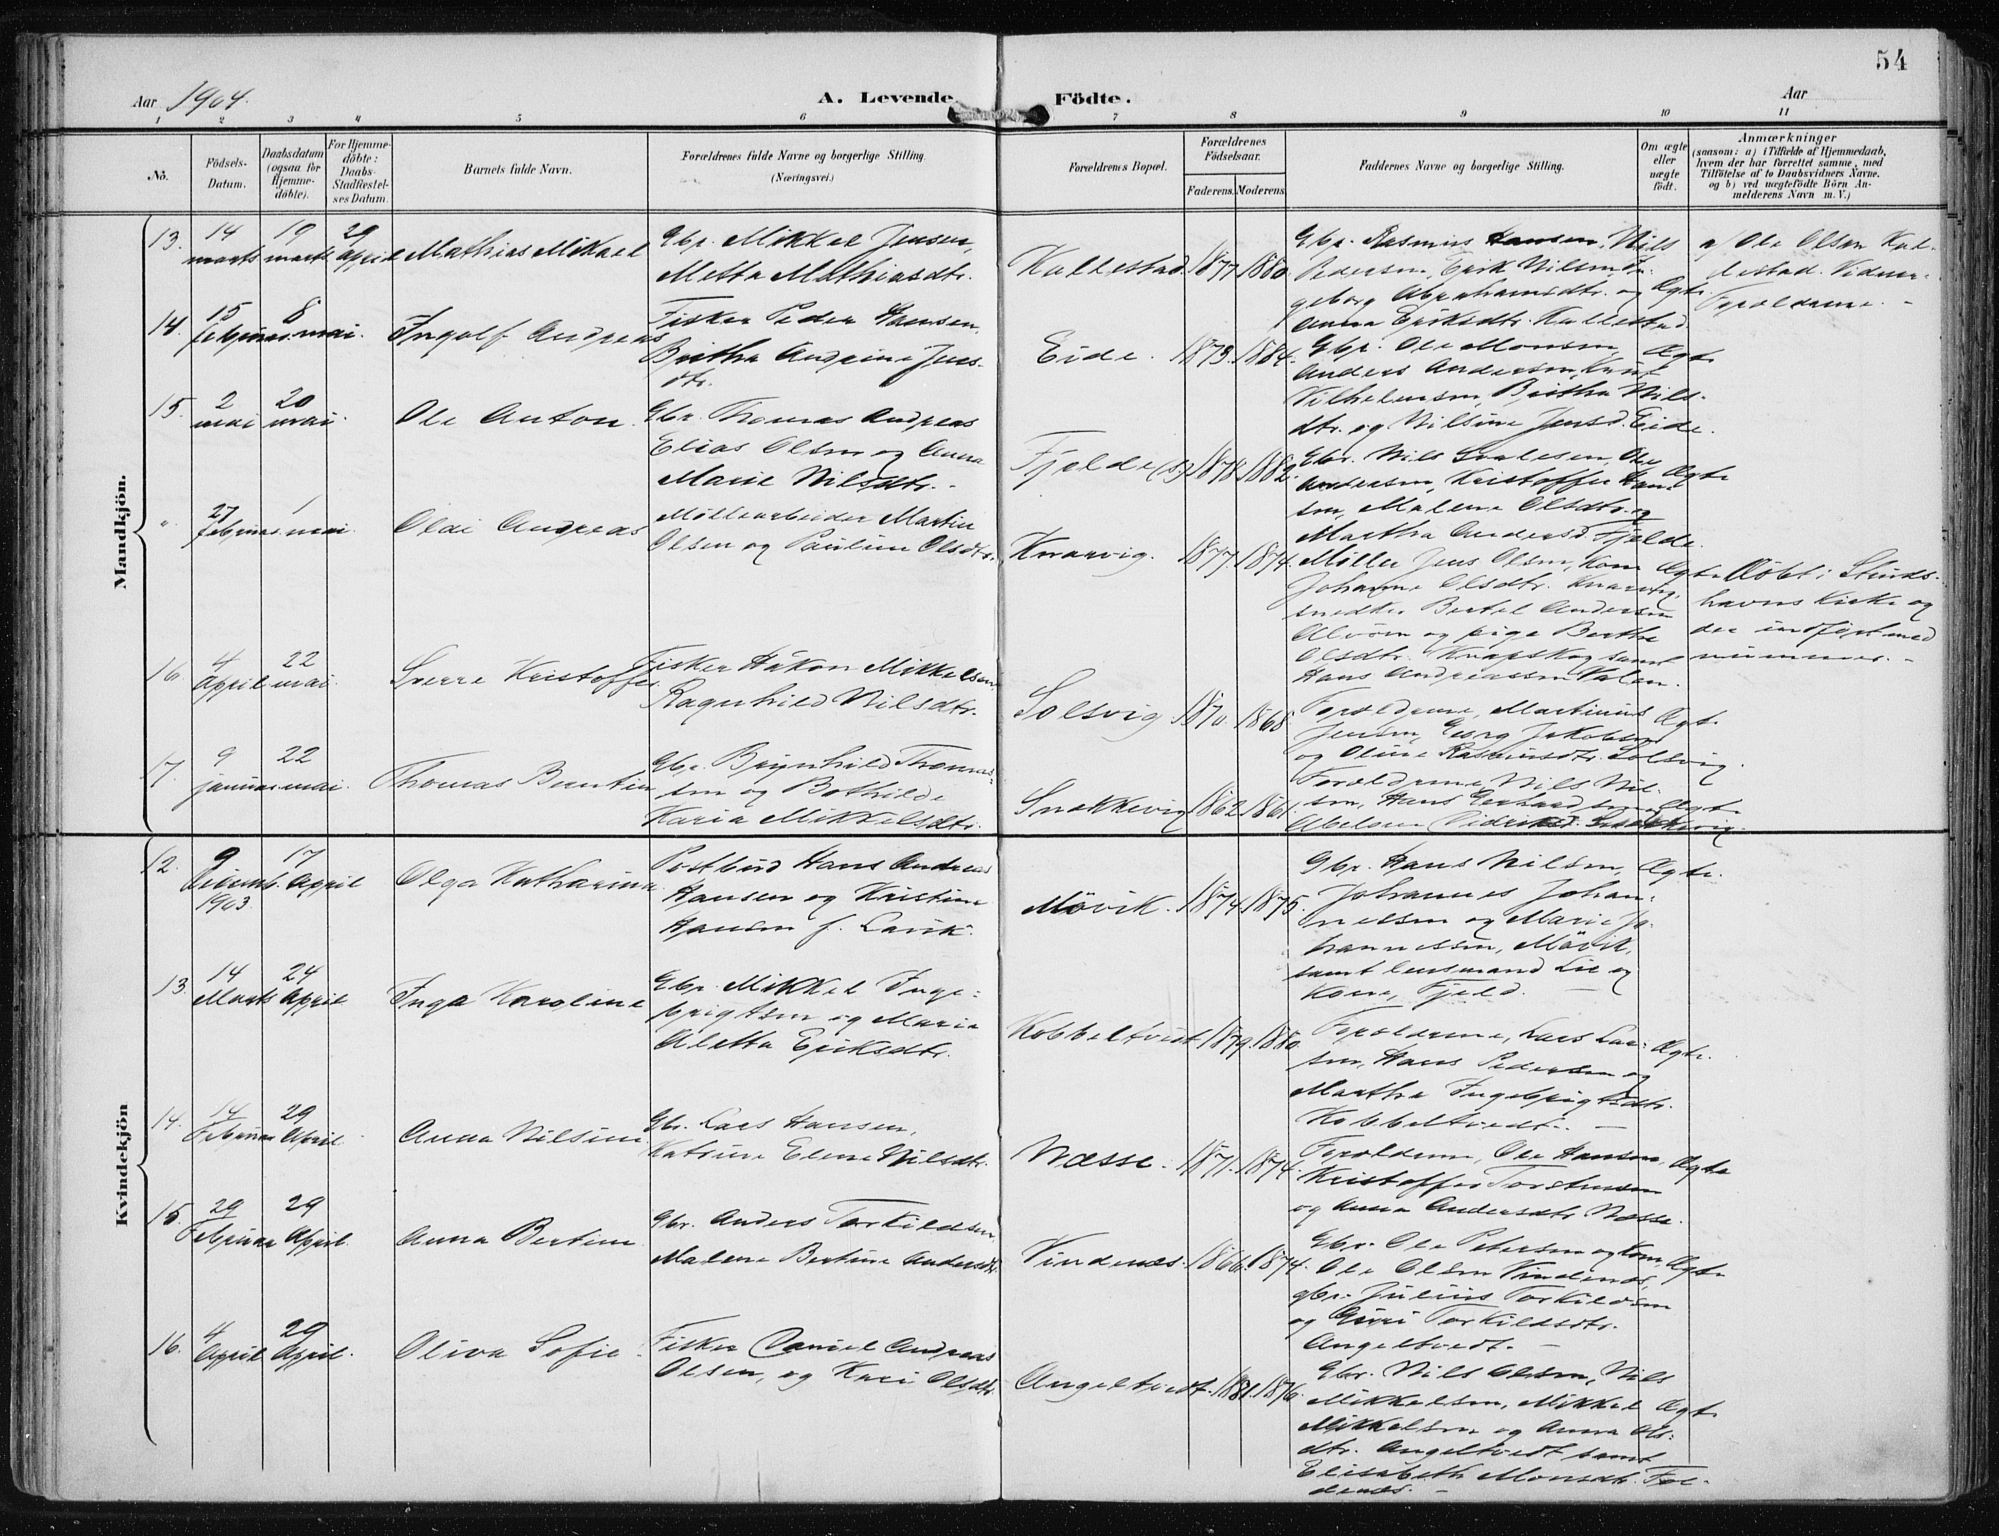 54
Aar 1904.
A. Levende Födte.
Aar
1 2 3 4 5 6 7 8 9 10 11
No.
Födsels-Datum.
Daabsdatum (ogsaa for Hjemmedöbte).
For Hjemmedöbte: Daabs Stadfæstelses Datum.
Barnets fulde Navn.
Forældrenes fulde Navne og borgerlige Stilling.
(Næringsvei.)
Forældrenes Bopæl.
Forældrenes Födselsaar.
Faderens. Moderens.
Faddernes Navne og borgerlige Stilling.
Om ægte eller uægte födt.
Anmærkninger
(saasom: a) i Tilfælde af Hjemmedaab,
hvem der har forrettet samme, med
Tilföielse af to Daabsvidners Navne.
og b) ved uægtefödte Börn An-
melderens Navn m. V.)
Mandkjön.
13. 14 marts 19 marts 29 April Mathias Mikael
Gbr. Mikkel Jensen,
Metta Mathiasdtr.
Kallestad. 1877. 1880.
Gbr. Rasmus Hansen, Nils
Pedersen, Erik Nilsen In-
geborg Abrahamsdtr. og
Anna Eriksdtr. Kallestad.
Ægte
a/ Ole Olsen Kal-
lestad. Vidner-
Forældrene. -
14. 15 februar. 8 mai. Ingolf Andreas
Fisker Peder Hansen,
Birtha Andrine Jens-
dtr.
Eide. 1873. 1884.
Gbr. Ole Monsen,
Anders Andersen, Knut
Vilhelmsen, Birtha Nils-
dtr. og Nilsine Jensd. Eide.
Ægte
15. 2 mai 20 mai. Ole Anton.
Gbr. Thomas Andreas
Elias Olsen og Anna
Marie Nilsdtr. -
Fjelde (S) 1878. 1882.
Gbr. Nils
Andersen, Kristoffer Han-
sen, Malene Olsdtr. og
Martha Andersd. Fjelde.
Ægte
" 27 februar 1 mai. Oldi Andreas
Möllearbeider Martin
Olsen og Pauline Olsdtr.
Knarvig. 1877. 1874.
Möller Jens Olsen, Kone
Johanne Olsdtr. Knarvig,
Bertel Andersen
Alvöen og pige Bertha
Olsdtr. Knapskog samt
Hans Andreassen
Ægte
Döbt i Sunds-
havns Kirke og
der indfört med
nummer. -
16. 4 April 22 mai. Sverre Kristoffer
Fisker Håkon Mikkelsen,
Ragnhild Nilsdtr.
Solsvig 1870. 1868.
Forældrene, Martinus
Jensen, Georg Jakobsen
og Oline Rasmusdtr. Solsvig.
Ægte
17. 9 januar 22 mai. Thomas Bentin
Gbr. Brynhild Thomas-
sen og Bothilde
Karia Mikkelsdtr.
Snekkevig 1862. 1861.
Forældrene, Nils Nil-
sen, Hans Gerhard
Abelone Didriksd. Snekkevig.
Ægte
Kvindekjön
12. 9 Decemb. 1903 17 April Olga Katharina
Postbud Hans Andreas
Hansen og Kristine
Hansen f. Larik.
Mövik. 1874. 1875.
Gbr. Hans Nilsen,
Johannes Johan-
nessen og Marie Jo-
hannessen, Mövik,
samt lensmand Lie og
Kone, Fjeld. -
Ægte
13. 14 Marts 24 April Inga Karoline
Gbr. Mikkel Inge-
brigtsen og Maria
Aletta Eriksdtr.
Kobbeltvedt 1879. 1880.
Forældrene, Lars Lar-
sen, Hans Pedersen og
Martha Ingebrigtsdtr.
Kobbeltvedt. -
Ægte
14. 14 Februar 29 April. Anna Nilsine
Gbr. Lars Hansen,
Katrine Elene Nilsdtr.
Næsse. 1871. 1874.
Forældrene, Ole Hansen,
Kristoffer Torstensen
og Anna Andersdtr. Næsse.
Ægte
15. 29 Februar 29 April. Anna Bertine
Gbr. Anders Torkildsen
Malene Bertine Andersdtr.
Vindenes. 1866. 1874.
Gbr. Ole Petersen og Kone,
Ole Olsen Vindenes,
gbr. Julius Torkildsen
og Guri Torkildsdtr.
Angeltvedt. -
Ægte
16. 4 April 29 April. Oliva Sofie.
Fisker Daniel Andreas
Olsen, og Kari Olsdtr.
Angeltvedt. 1881. 1876.
Gbr. Nils Olsen, Nils
Mikkelsen, Mikkel
Mikkelsen og Anna Ols-
dtr. Angeltvedt samt
Elisabeth Monsdtr. Fol-
denæs. -
Ægte